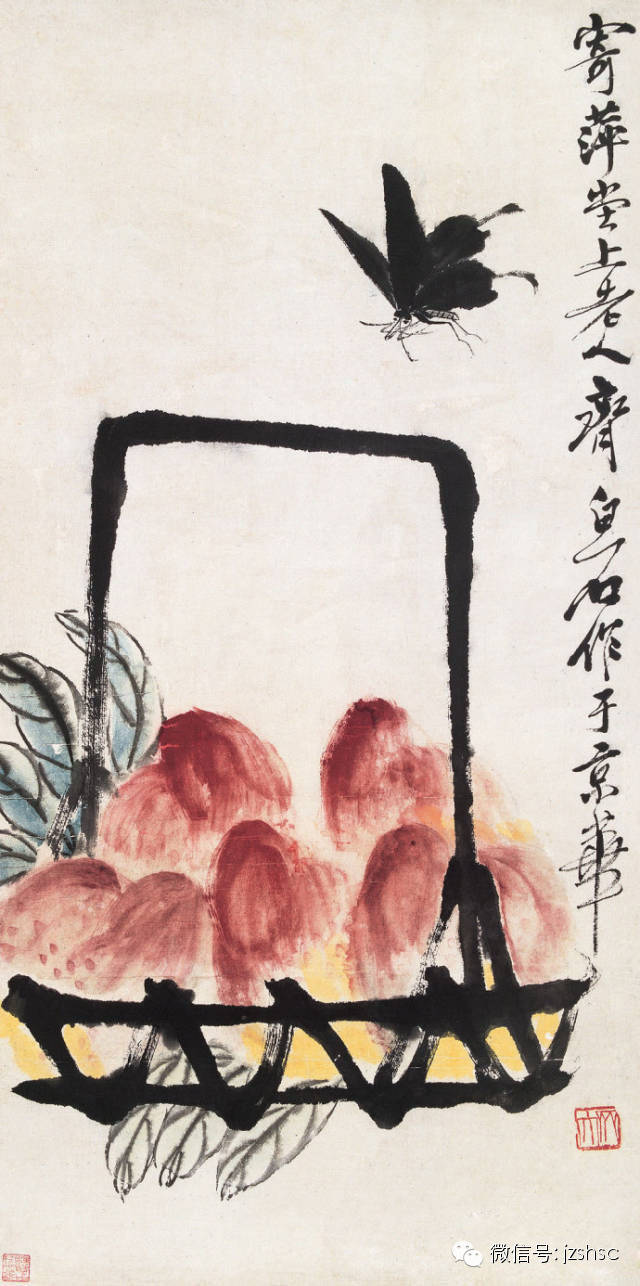 寄萍堂上老人齊白石作于京華
微信号: jzshsc